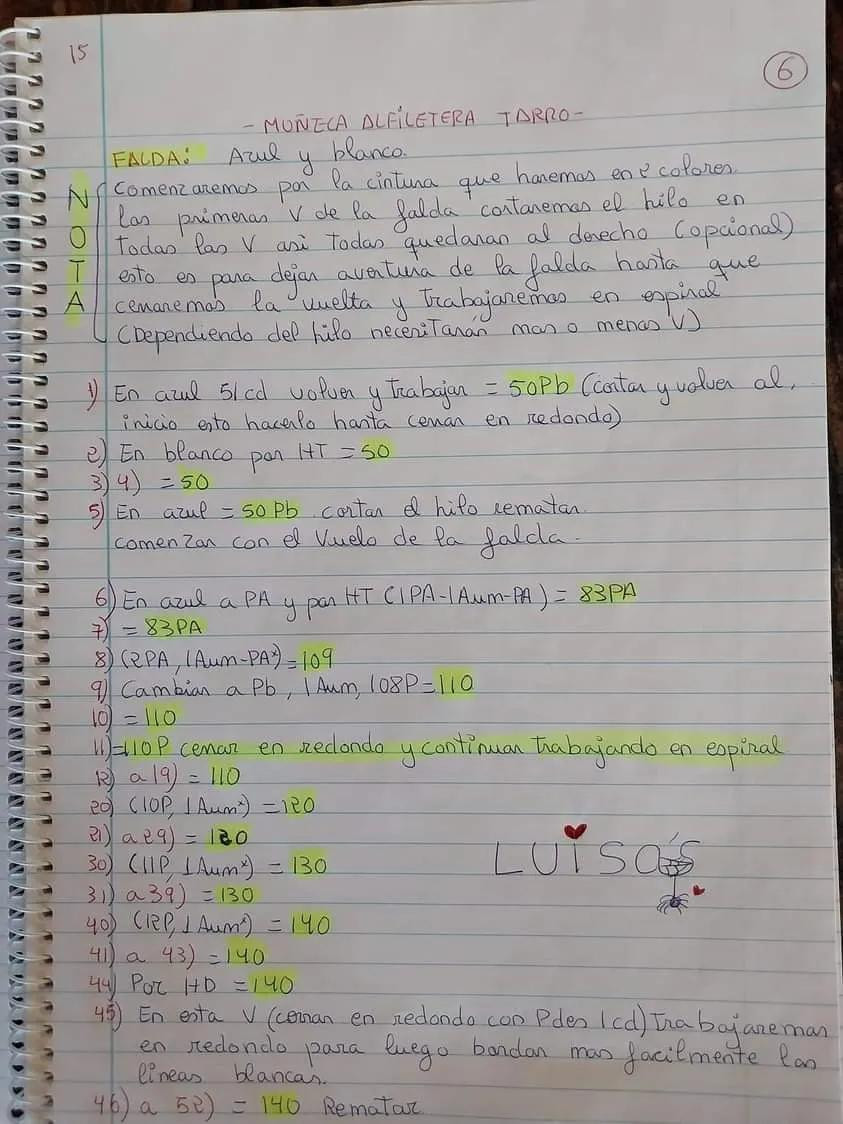 15
6
- MUÑECA ALFILETERA TARRO -
FALDA: Azul y blanco.
NOTA
Comenzaremos por la cintura que haremos en 2 colores.
las primeras V de la falda cortaremos el hilo en
Todas las V asi Todas quedaran al derecho (opcional)
esto es para dejar avertura de la falda hasta que
cerraremos la vuelta y Trabajaremos en espiral
(Dependiendo del hilo necesitarán mas o menos V)
1) En azul 51cd volver y Trabajar = 50Pb (cortar y volver al,
inicio esto hacerlo hasta cerrar en redondo)
2) En blanco por HT = 50
3) 4) = 50
5) En azul = 50 Pb cortar el hilo rematar.
comenzar con el Vuelo de la falda.
6) En azul a PA y por HT (1PA-1Aum-PA) = 83PA
7) = 83PA
8) (2PA, 1Aum-PAˣ) = 109
9) Cambian a Pb, 1Aum, 108P = 110
10) = 110
11) = 110P cerrar en redondo y continuar trabajando en espiral
12) a 19) = 110
20) (10P, 1Aumˣ) = 120
21) a 29) = 120
30) (11P, 1Aumˣ) = 130
31) a 39) = 130
40) (12P, 1Aumˣ) = 140
41) a 43) = 140
44) Por HD = 140
45) En esta V (cerrar en redondo con Pdes 1cd) Trabajaremos
en redondo para luego bordar mas facilmente las
lineas blancas.
46) a 52) = 140 Rematar
LUISA'S